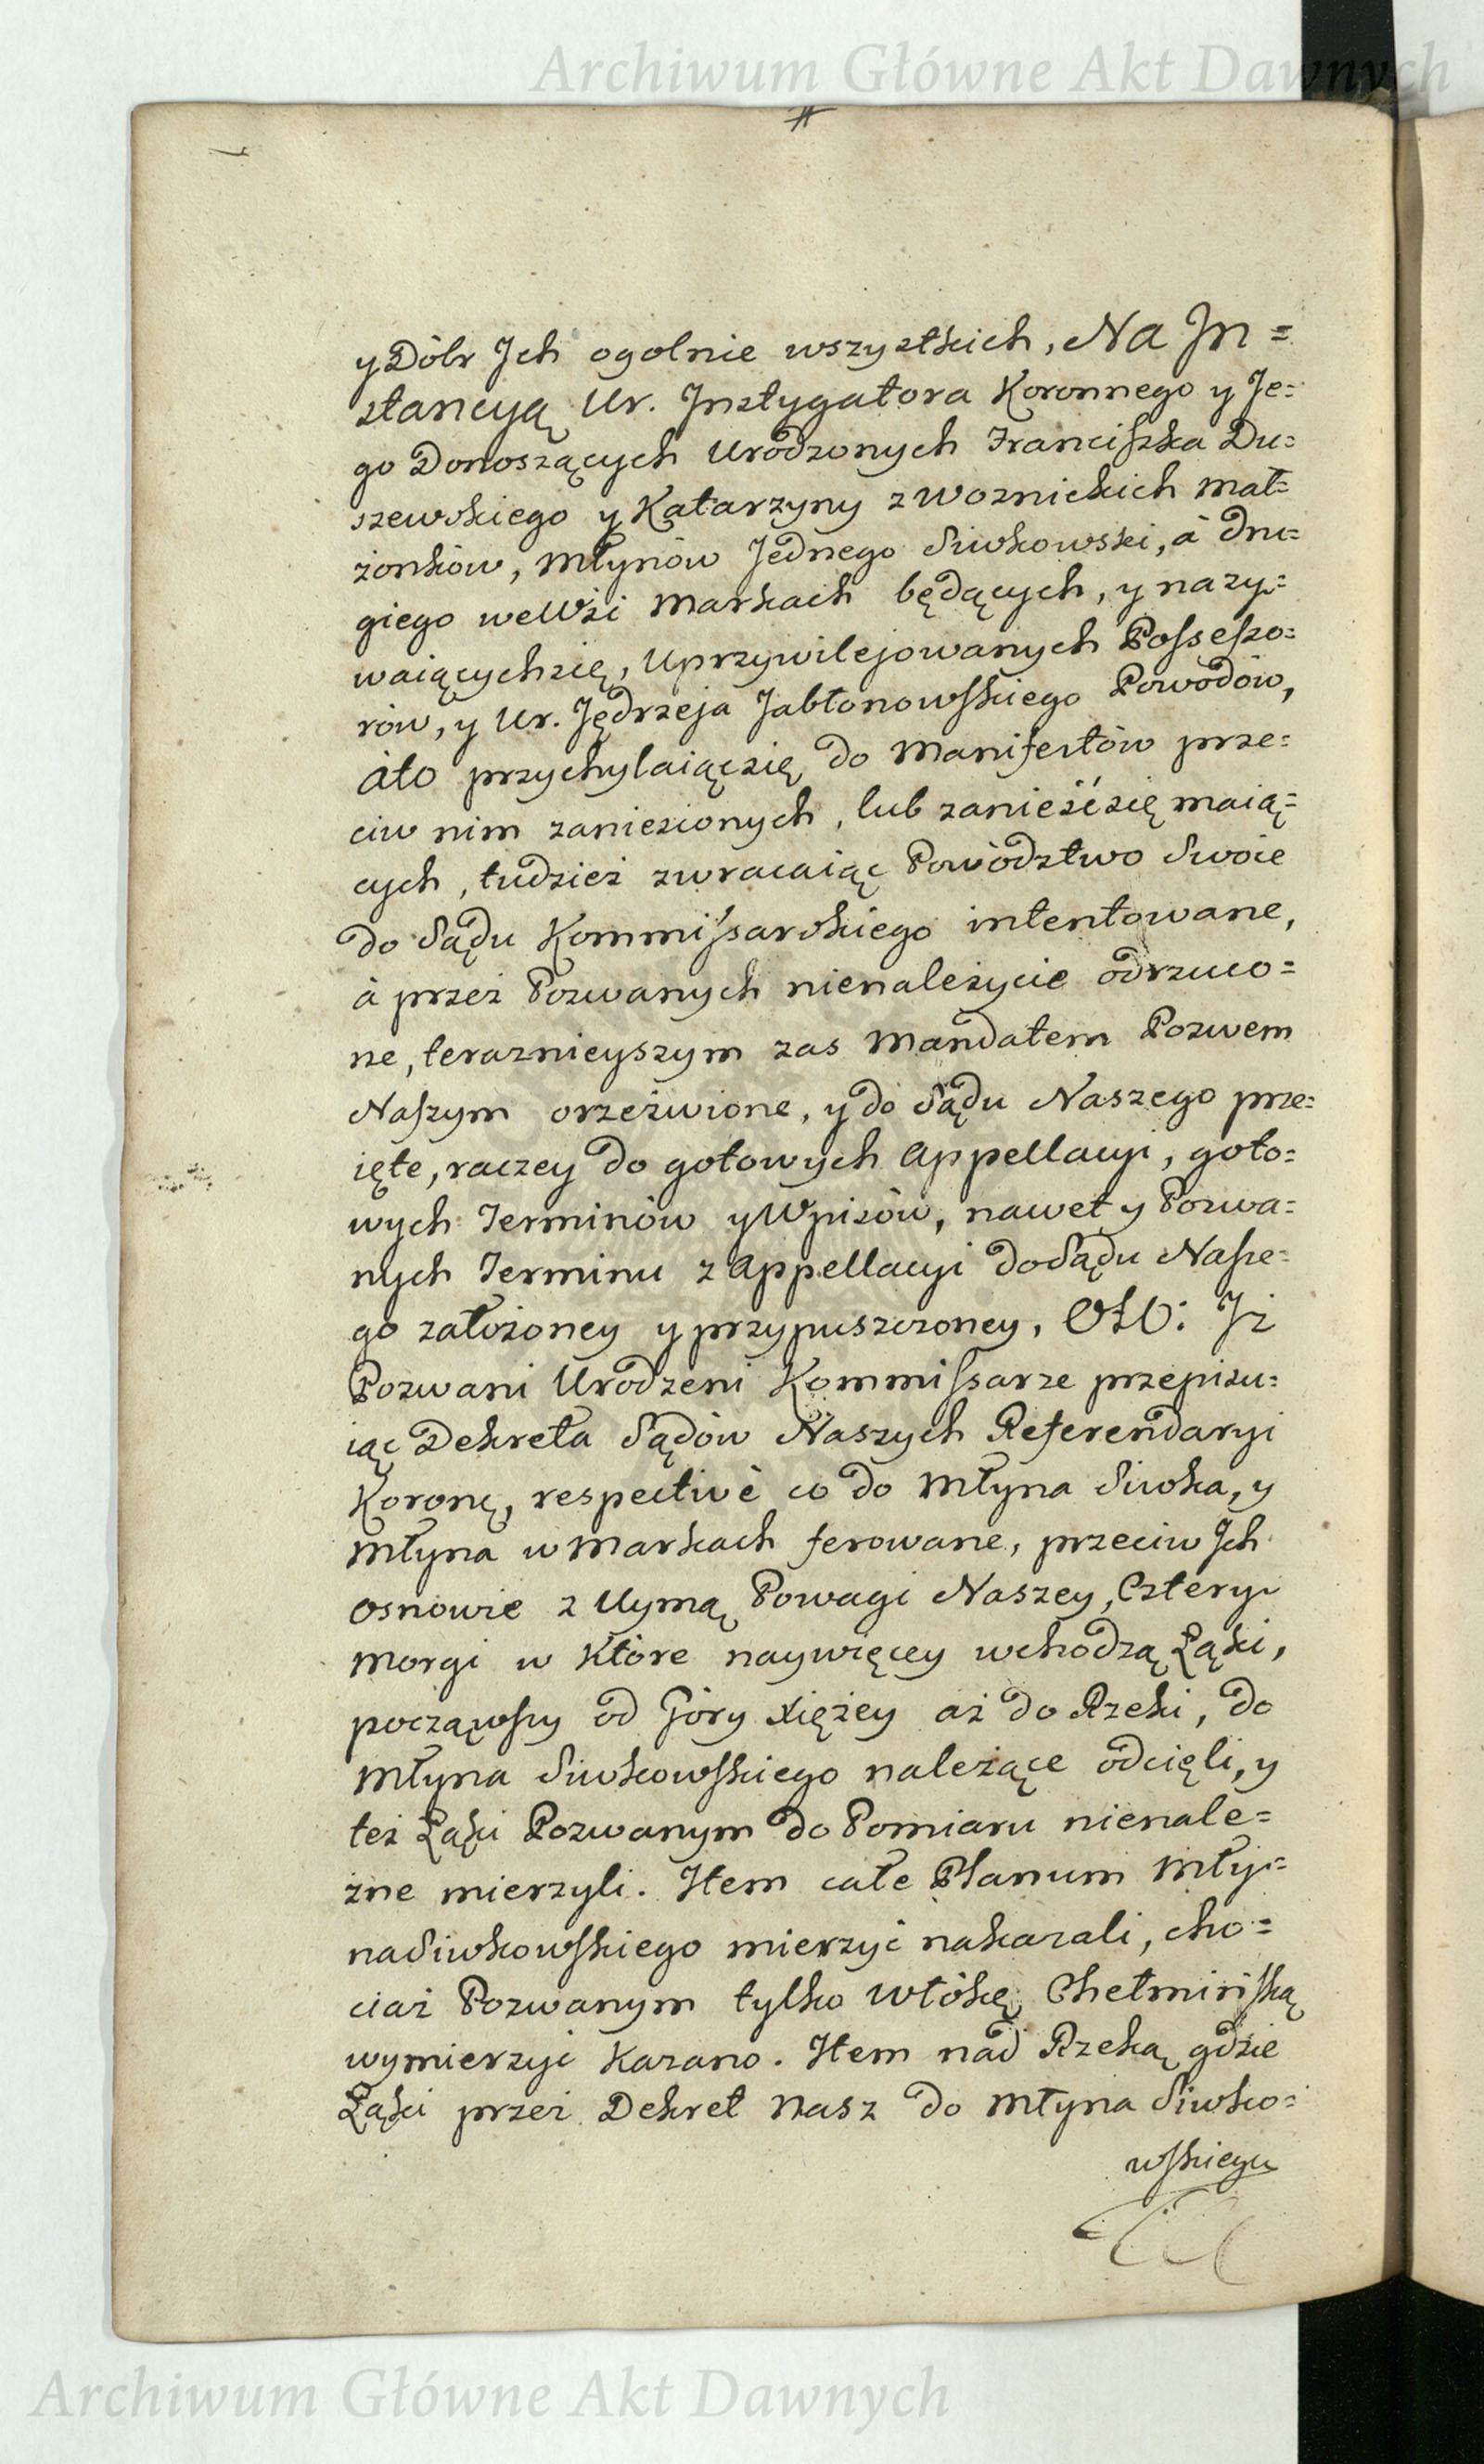 Archiwum Główne Akt Dawnych
y Dóbr Jch ogolnie wszystkich, Na Jn=
stancyą Ur. Jnstygatora Koronnego y Je=
go Donoszących Urodzonych Franciszka Du=
szewskiego y Katarzyny z Woznickich Mał=
żonków, Młynów Jednego Siwkowski, à dru=
giego we Wsi Markach będących, y nazy=
waiących się, Uprzywilejowanych Possesso=
rów, y Ur. Jędrzeja Jabłonowskiego Powodów,
àto przychylaiąc się do Manifestów prze=
ciw nim zaniesionych, lub zanieść się maią=
cych, tudzież zwracaiąc Powództwo Swoie
do Sądu Kommissarskiego intentowane,
à przez Pozwanych nienależycie odrzuco=
ne, teraznieyszym zas Mandatem Pozwem
Naszym orzeźwione, y do Sądu Naszego prze=
ięte, raczey do gotowych Appellacyi, goto=
wych Terminów y Wpisów, nawet y Pozwa=
nych Terminu z Appellacyi do Sądu Nasze=
go założoney y przypuszczoney, Oto: Jż
Pozwani Urodzeni Kommissarze przepisu=
iąc Dekreta Sądów Naszych Referendaryi
Koronę, respectivè co do Młyna Siwka, y
Młyna w Markach ferowane, przeciw Jch
osnowie z Uymą Powagi Naszey, Cztery
Morgi w które naywięcey wchodzą Łąki,
począwszy od Góry Xiężey aż do Rzeki, do
Młyna Siwkowskiego należące odcięli, y
też Łąki Pozwanym do Pomiaru nienale=
żne mierzyli. Item całe Planum Mły=
na Siwkowskiego mierzyć nakazali, cho=
ciaż Pozwanym tylko Włókę Chełmińską
wymierzyć kazano. Item nad Rzeką gdzie
Łąki przez Dekret Nasz do Młyna Siwko=
wskiego
Archiwum Główne Akt Dawnych